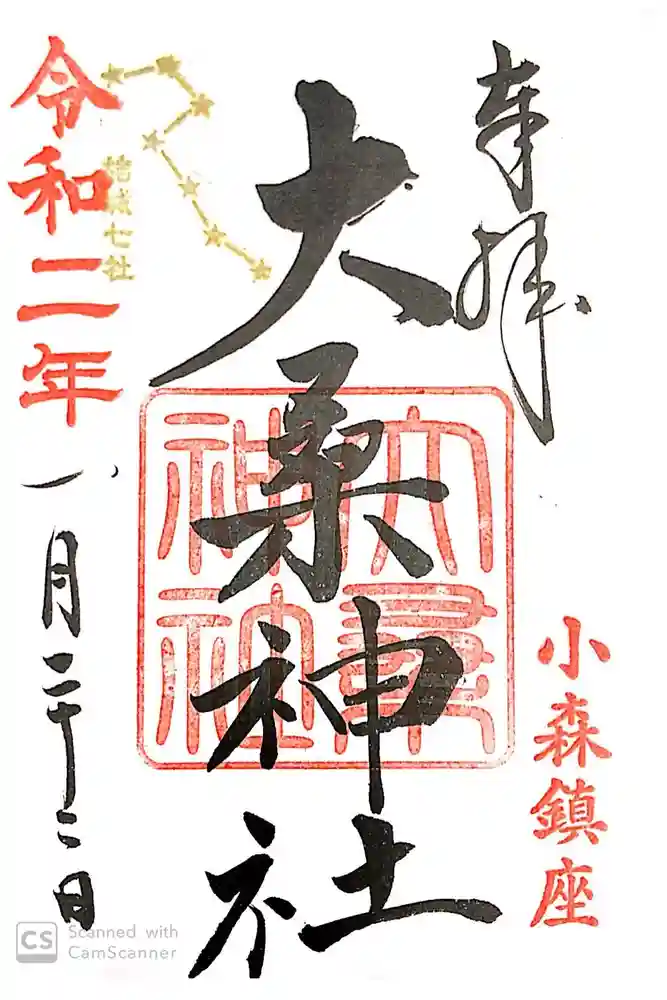 奉拝
小森鎮座
大桑神社
大桑神社
結城七社
令和二年一月二十二日
CS Scanned with
CamScanner